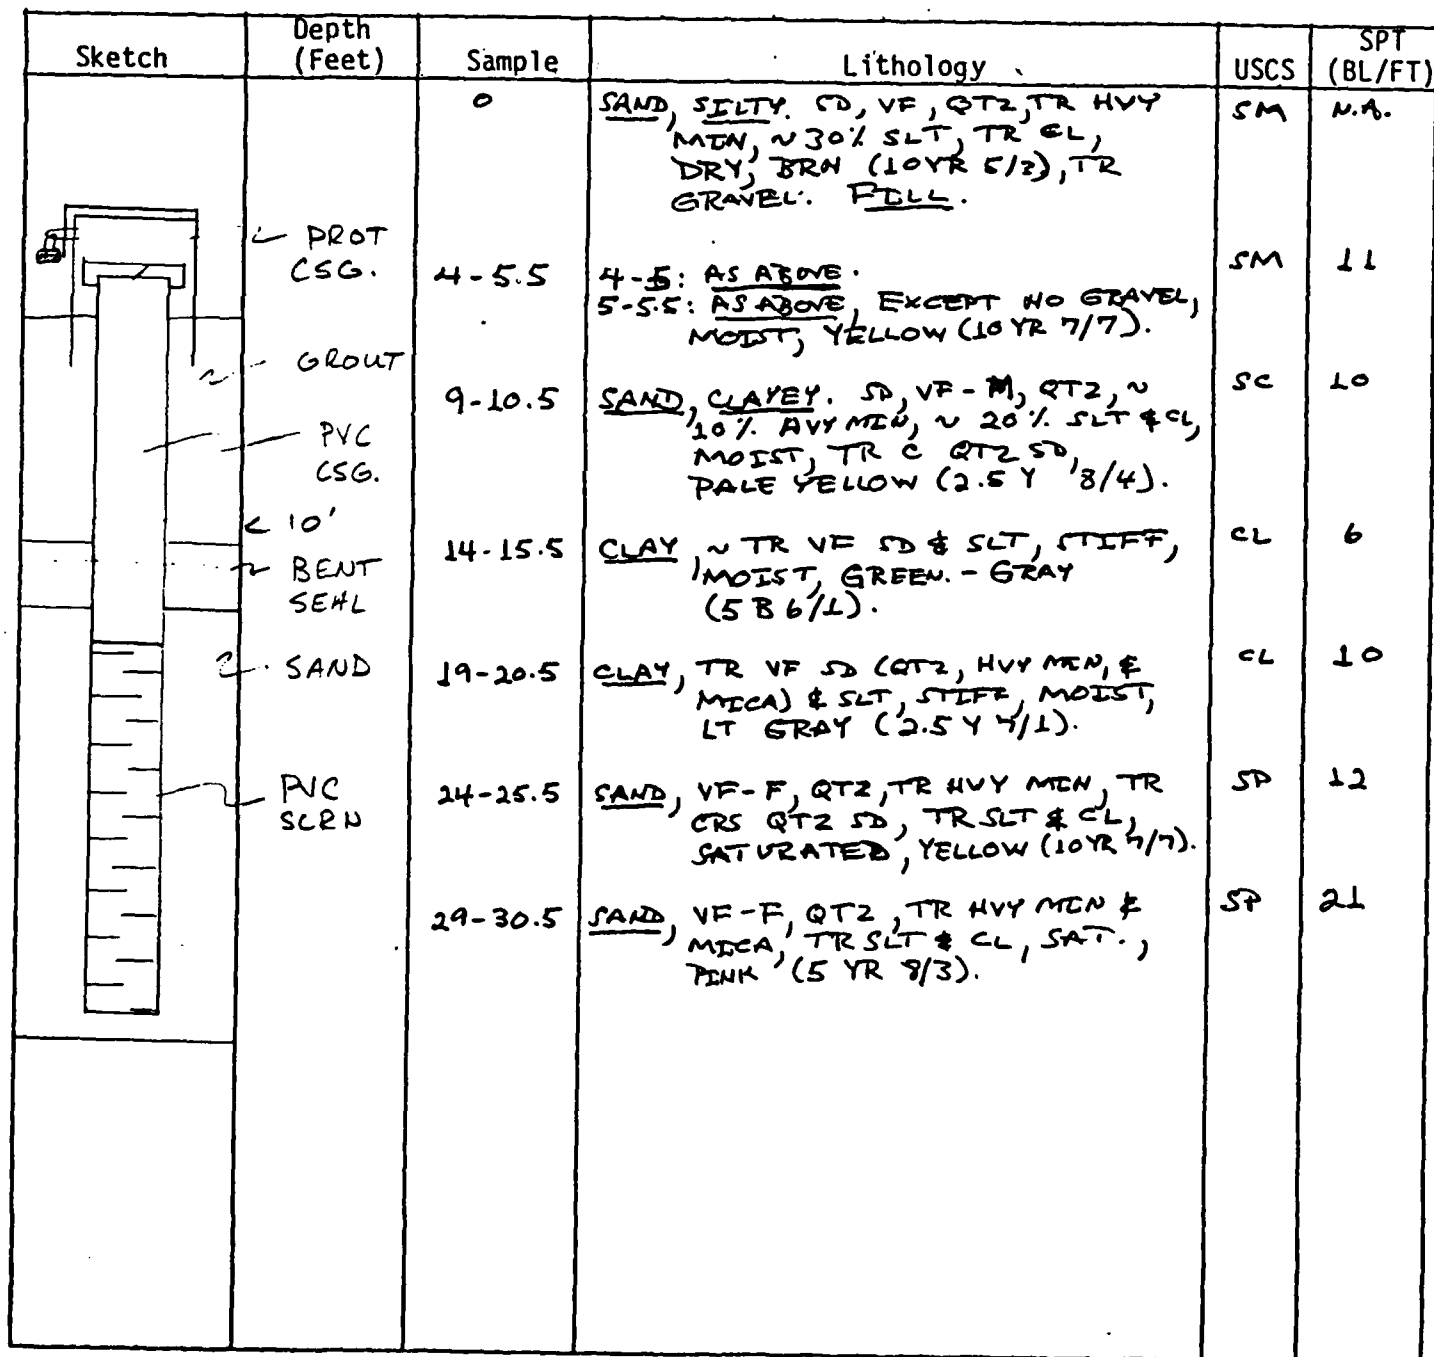 Sketch Depth (Feet) Sample Lithology USCS SPT (BL/FT)
0 SAND, SILTY. SD, VF, QTZ, TR HVY SM N.A.
MIN, ~30% SLT, TR CL,
DRY, BRN (10YR 5/3), TR
GRAVEL. FILL.
PROT
CSG.
4-5.5 4-5: AS ABOVE. SM 11
5-5.5: AS ABOVE, EXCEPT NO GRAVEL,
MOIST, YELLOW (10 YR 7/7).
GROUT
9-10.5 SAND, CLAYEY. SD, VF-M, QTZ, ~ SC 10
10% HVY MIN, ~ 20% SLT & CL,
MOIST, TR C QTZ SD,
PALE YELLOW (2.5 Y 8/4).
PVC
CSG.
< 10'
14-15.5 CLAY, ~ TR VF SD & SLT, STIFF, CL 6
MOIST, GREEN.-GRAY
(5 B 6/1).
BENT
SEAL
SAND
19-20.5 CLAY, TR VF SD (QTZ, HVY MIN, & CL 10
MICA) & SLT, STIFF, MOIST,
LT GRAY (2.5 Y 7/1).
PVC
SCRN
24-25.5 SAND, VF-F, QTZ, TR HVY MIN, TR SP 12
CRS QTZ SD, TR SLT & CL,
SATURATED, YELLOW (10YR 7/7).
29-30.5 SAND, VF-F, QTZ, TR HVY MIN & SP 21
MICA, TR SLT & CL, SAT.,
PINK (5 YR 8/3).